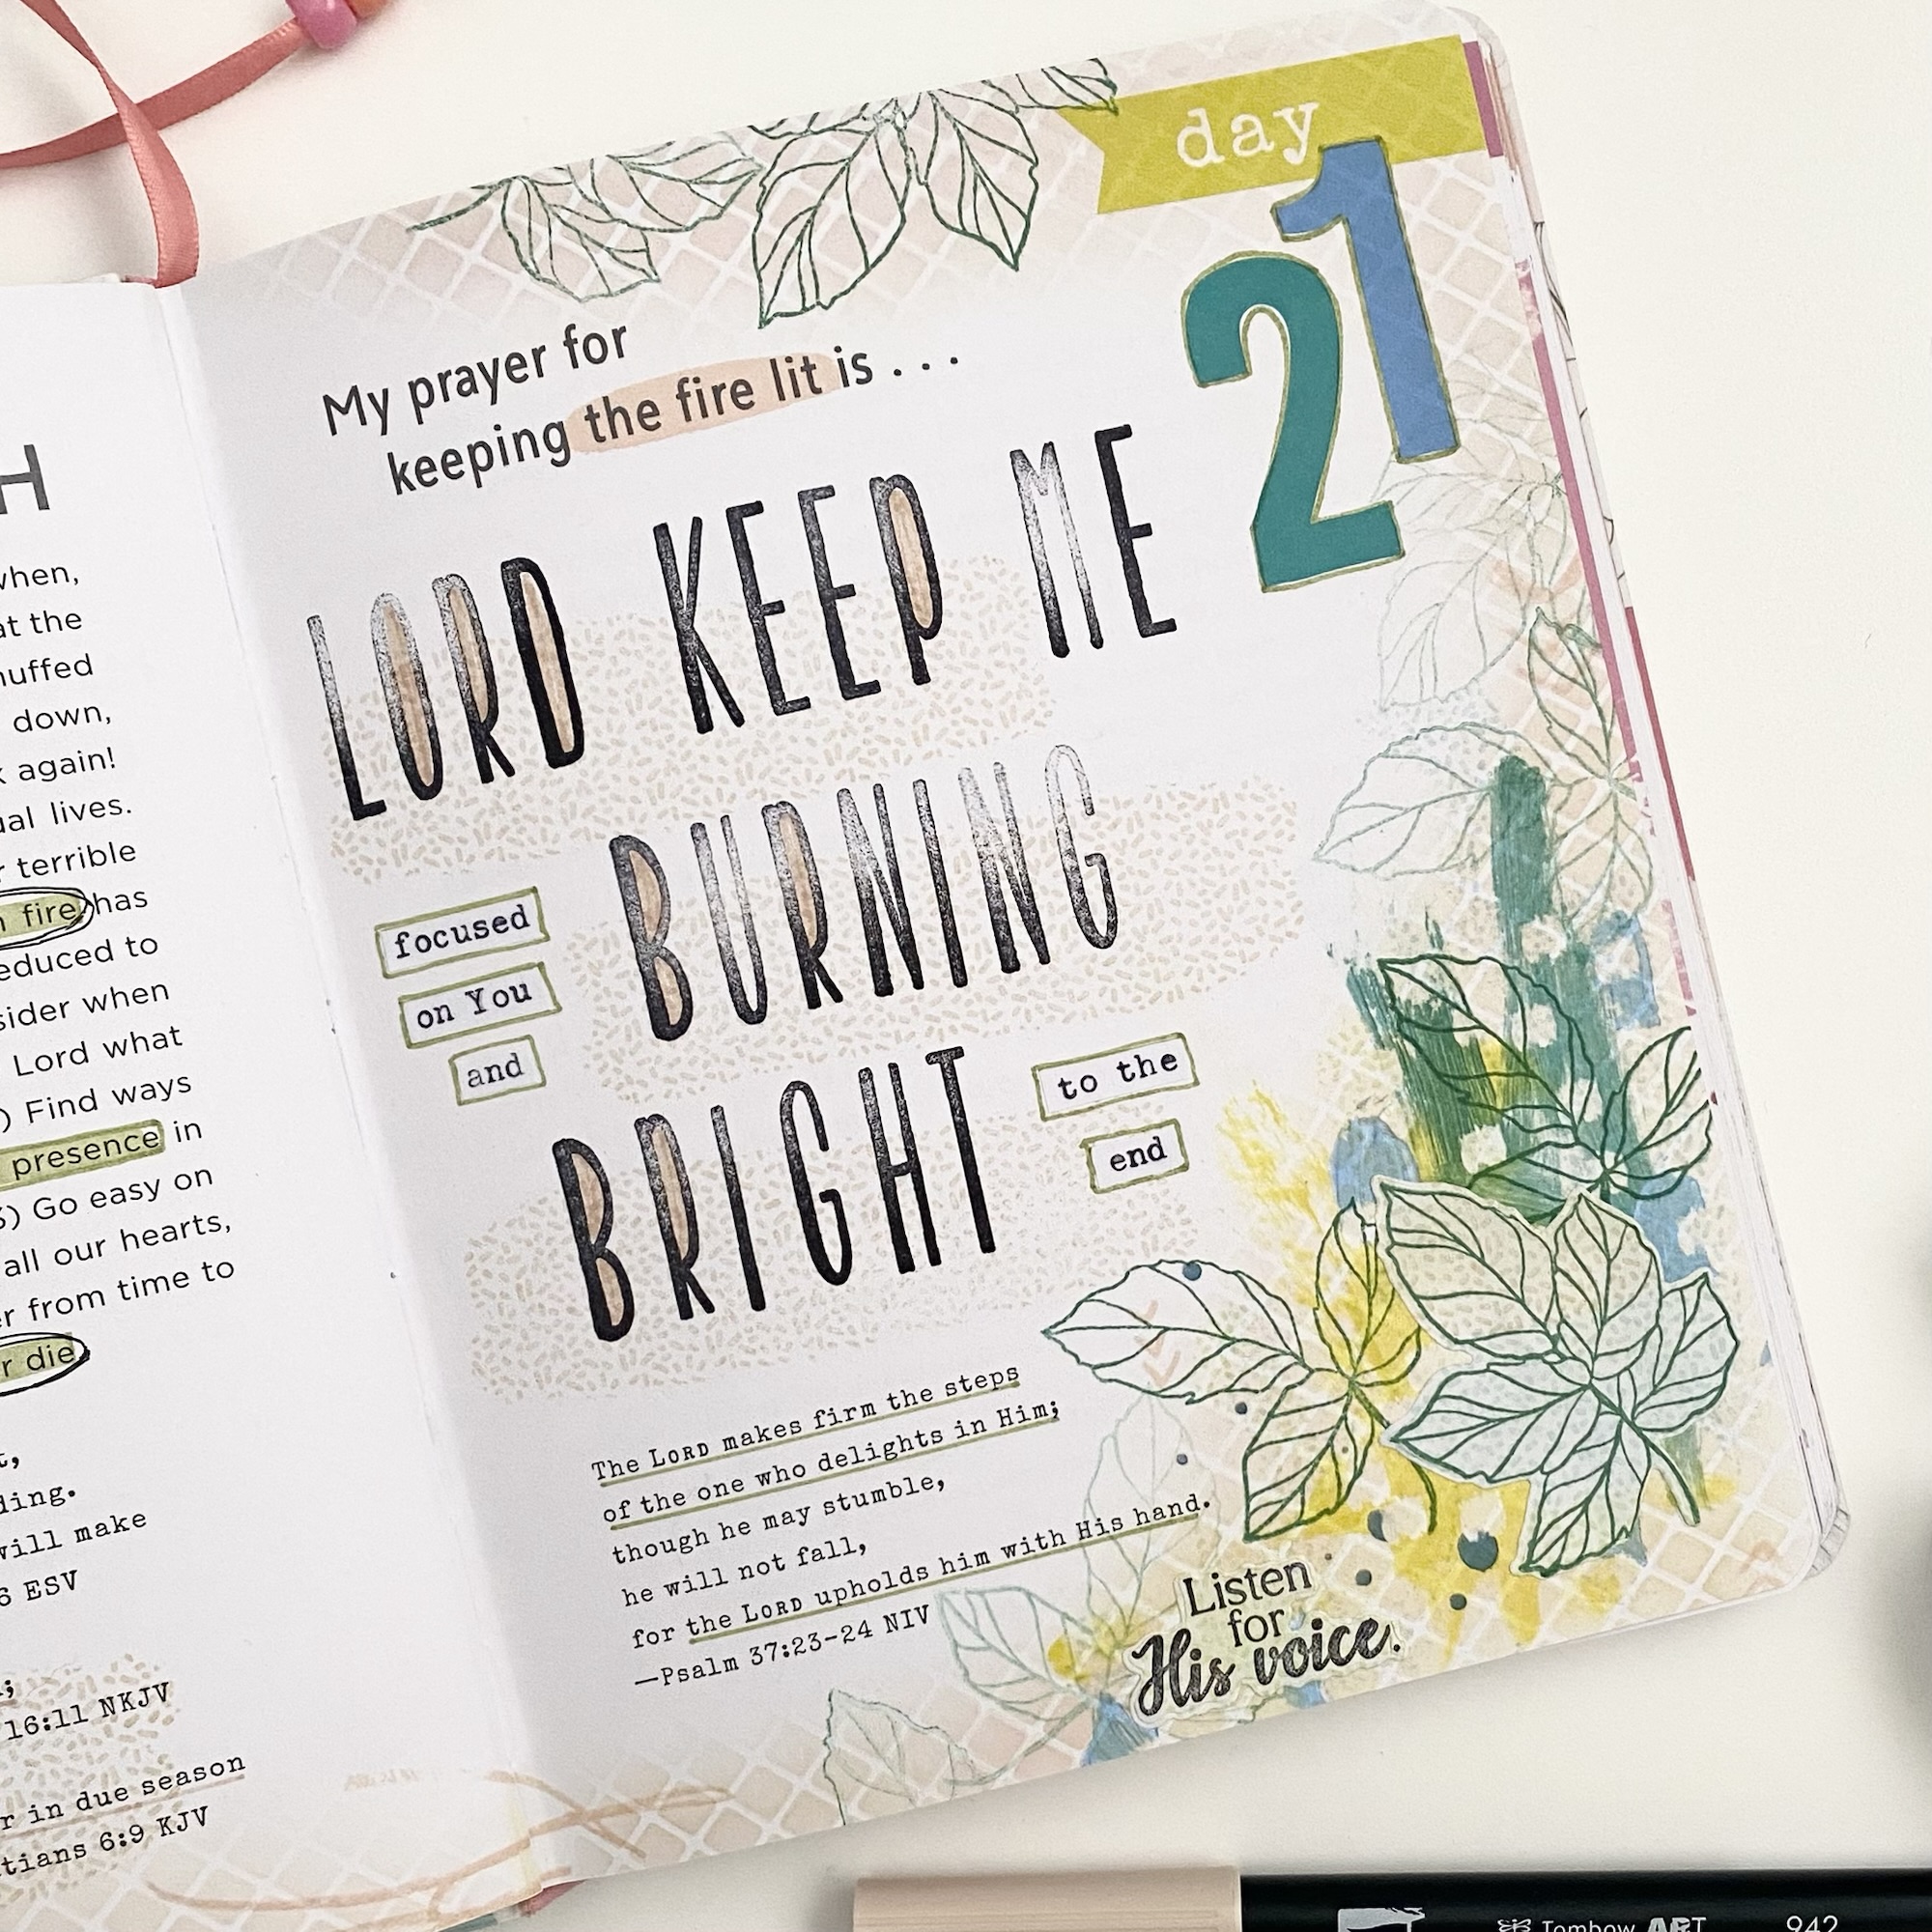 H
when,
at the
down,
again!
lives.
terrible
fire has
to
when
Lord what
) Find ways
presence in
) Go easy on
all our hearts,
from time to
die
will make
6 ESV
16:11 NKJV
in due season
6:9 KJV
day
21
My prayer for
keeping the fire lit is . . .
LORD KEEP ME
focused
on You
and
BURNING
BRIGHT
to the
end
The LORD makes firm the steps
of the one who delights in Him;
though he may stumble,
he will not fall,
for the LORD upholds him with His hand.
—Psalm 37:23-24 NIV
Listen
for
His voice.
Tombow ART
942